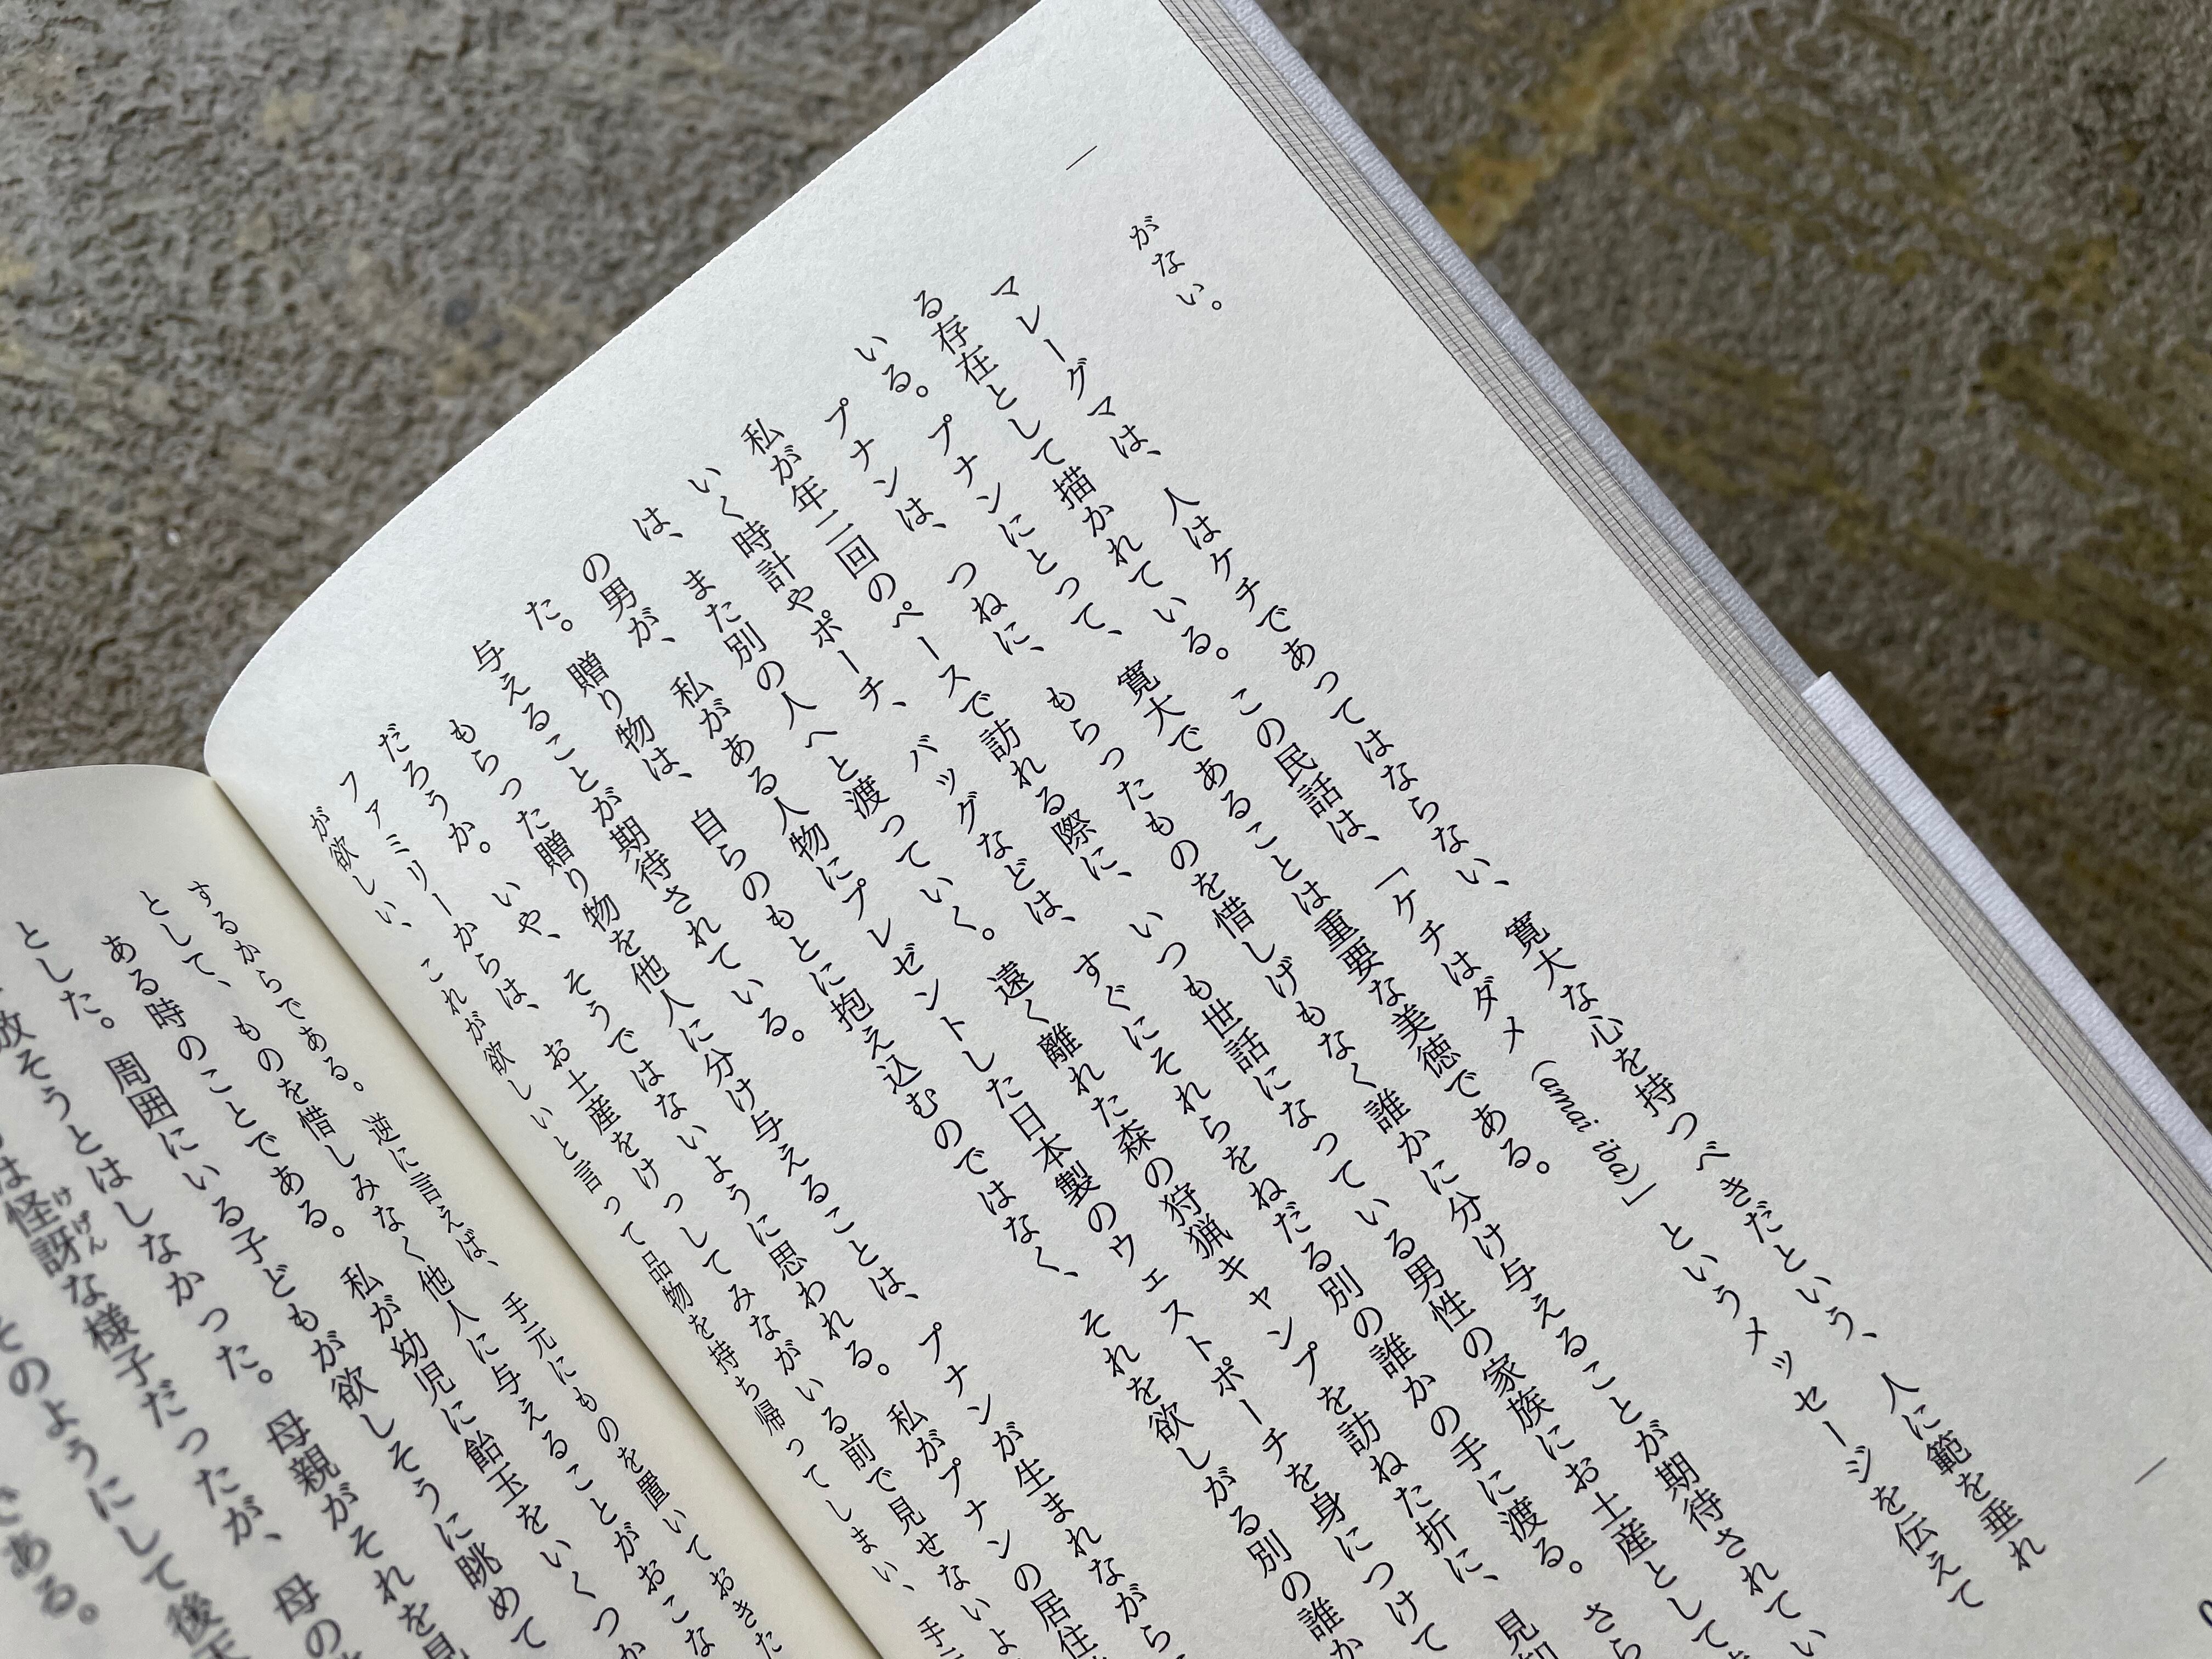 がない。
マレーグマは、人はケチであってはならない、寛大な心を持つべきだという、人に範を垂れ
る存在として描かれている。この民話は、「ケチはダメ(amai iba)」というメッセージを伝えて
いる。プナンにとって、寛大であることは重要な美徳である。
プナンは、つねに、もらったものを惜しげもなく誰かに分け与えることが期待されてい
私が年二回のペースで訪れる際に、いつも世話になっている男性の家族にお土産として
いく時計やポーチ、バッグなどは、すぐにそれらをねだる別の誰かの手に渡る。さら
は、また別の人へと渡っていく。遠く離れた森の狩猟キャンプを訪ねた折に、見知
の男が、私がある人物にプレゼントした日本製のウェストポーチを身につけて
た。贈り物は、自らのもとに抱え込むのではなく、それを欲しがる別の誰か
与えることが期待されている。
もらった贈り物を他人に分け与えることは、プナンが生まれながら
だろうか。いや、そうではないように思われる。私がプナンの居住
ファミリーからは、お土産をけっしてみながいる前で見せないよ
が欲しい、これが欲しいと言って品物を持ち帰ってしまい、手元
するからである。逆に言えば、手元にものを置いておきた
として、ものを惜しみなく他人に与えることがおこな
ある時のことである。私が幼児に飴玉をいくつか
とした。周囲にいる子どもが欲しそうに眺めて
放そうとはしなかった。母親がそれを見
は怪訝な様子だったが、母の
そのようにして後天
ある。